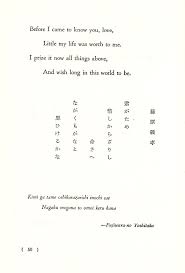 Before I came to know you, love,
Little my life was worth to me.
I prize it now all things above,
And wish long in this world to be.
藤原義孝
君がため
惜しからざりし
命さへ
ながくもがなと
思ひけるかな
Kimi ga tame oshikarazarishi inochi sae
Nagaku mogana to omoi keru kana
—Fujiwara-no Yoshitaka
( 50 )